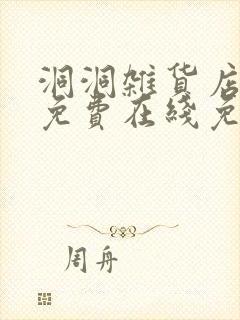 洞洞雑貨店
免費在綫免
周舟